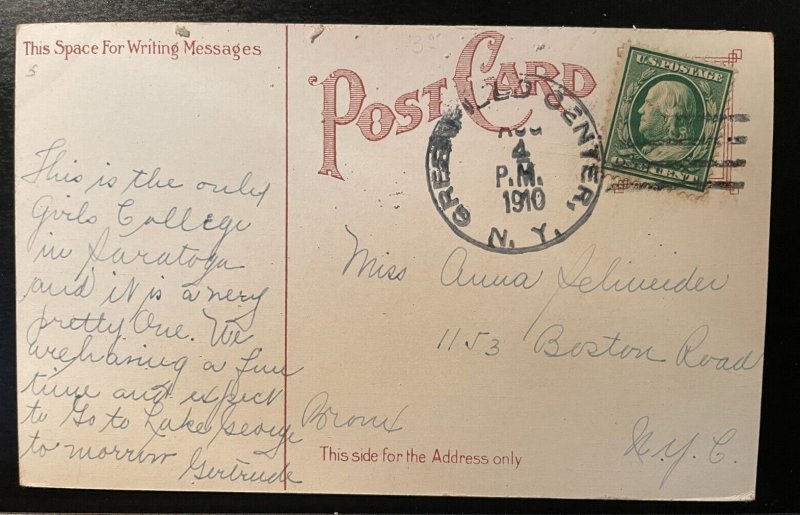 This Space For Writing Messages
POST CARD
U.S. POSTAGE
ONE CENT
GREENFIELD CENTER,
AUG
4
P.M.
1910
N. Y.
This is the only
Girls College
in Saratoga
and it is a very
pretty One. We
are having a fine
time and expect
to Go to Lake George
to morrow Gertrude
Miss Anna Schneider
1153 Boston Road
Bronx
N.Y.C.
This side for the Address only